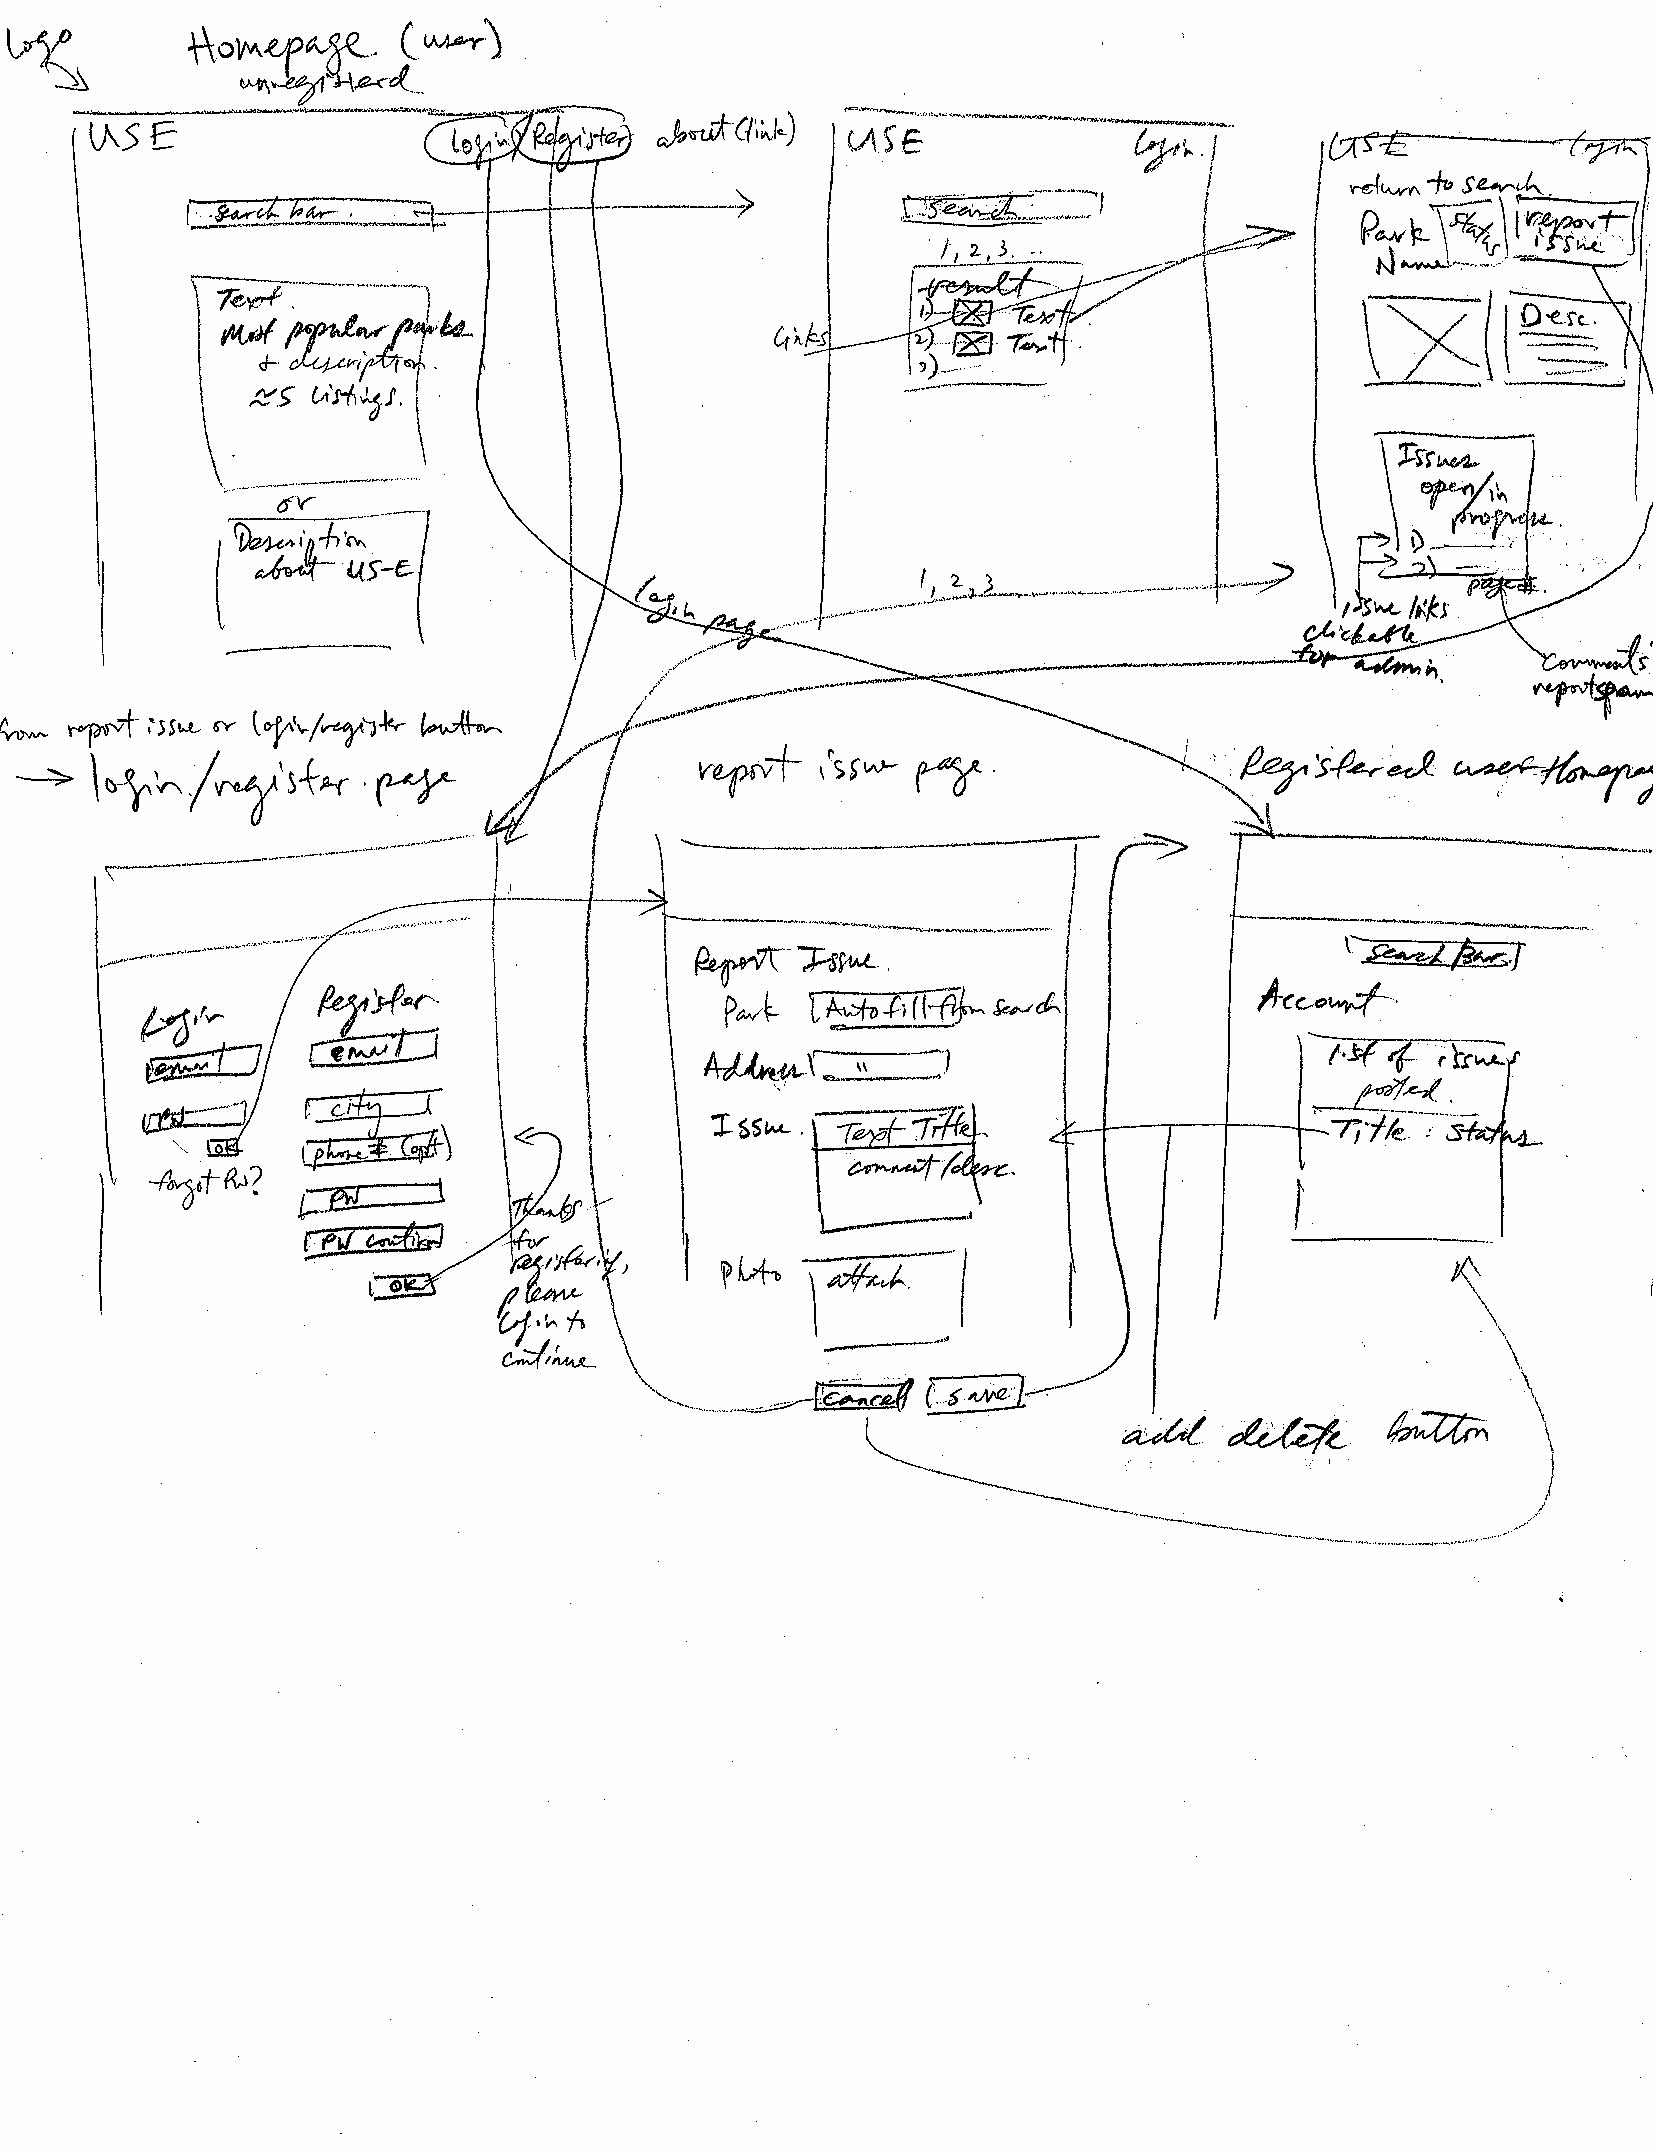 Logo
Homepage (user)
unregisterd
USE
login/Register
about (link)
search bar
Text
Most popular parks
+ description
≈5 listings.
or
Description
about US-E
USE
login
search
1, 2, 3...
result
1) Text
2) Text
3)
links
1, 2, 3
login page
USE
login
return to search
Park
Name
status
report
issue
Desc.
Issues
open/in
progress.
1)
2)
page #.
issue links
clickable
for admin.
comments
report spam
from report issue or login/register button
→ login/register page
Login
email
PW
OK
forgot PW?
Register
email
city
phone # (opt)
PW
PW confirm
OK
Thanks
for
registering,
please
login to
continue
report issue page.
Report Issue.
Park Autofill from search
Address "
Issue. Text Title
comment/desc.
Photo attach.
cancel save
Registered user Homepag
search bar
Account
list of issues
posted.
Title : Status
add delete button